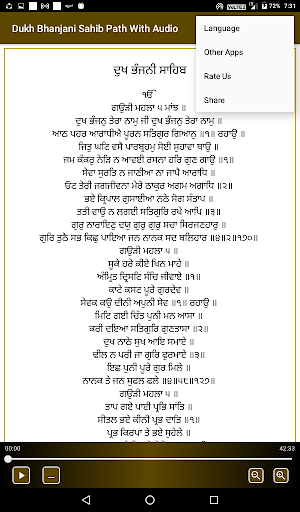 7:31
Dukh Bhanjani Sahib Path With Audio
Language
Other Apps
Rate Us
Share
ਦੁਖ ਭੰਜਨੀ ਸਾਹਿਬ
ੴ
ਗਉੜੀ ਮਹਲਾ ੫ ਮਾਂਝ ॥
ਦੁਖ ਭੰਜਨੁ ਤੇਰਾ ਨਾਮੁ ਜੀ ਦੁਖ ਭੰਜਨੁ ਤੇਰਾ ਨਾਮੁ ॥
ਆਠ ਪਹਰ ਆਰਾਧੀਐ ਪੂਰਨ ਸਤਿਗੁਰ ਗਿਆਨੁ ॥੧॥ ਰਹਾਉ ॥
ਜਿਤੁ ਘਟਿ ਵਸੈ ਪਾਰਬ੍ਰਹਮੁ ਸੋਈ ਸੁਹਾਵਾ ਥਾਉ ॥
ਜਮ ਕੰਕਰੁ ਨੇੜਿ ਨ ਆਵਈ ਰਸਨਾ ਹਰਿ ਗੁਣ ਗਾਉ ॥੧॥
ਸੇਵਾ ਸੁਰਤਿ ਨ ਜਾਣੀਆ ਨਾ ਜਾਪੈ ਆਰਾਧਿ ॥
ਓਟ ਤੇਰੀ ਜਗਜੀਵਨਾ ਮੇਰੇ ਠਾਕੁਰ ਅਗਮ ਅਗਾਧਿ ॥੨॥
ਭਏ ਕ੍ਰਿਪਾਲ ਗੁਸਾਈਆ ਨਠੇ ਸੋਗ ਸੰਤਾਪ ॥
ਤਤੀ ਵਾਉ ਨ ਲਗਈ ਸਤਿਗੁਰਿ ਰਖੇ ਆਪਿ ॥੩॥
ਗੁਰੁ ਨਾਰਾਇਣੁ ਦਯੁ ਗੁਰੁ ਗੁਰੁ ਸਚਾ ਸਿਰਜਣਹਾਰੁ ॥
ਗੁਰਿ ਤੁਠੈ ਸਭ ਕਿਛੁ ਪਾਇਆ ਜਨ ਨਾਨਕ ਸਦ ਬਲਿਹਾਰ ॥੪॥੨॥੧੭੦॥
ਗਉੜੀ ਮਹਲਾ ੫ ॥
ਸੂਕੇ ਹਰੇ ਕੀਏ ਖਿਨ ਮਾਹੇ ॥
ਅੰਮ੍ਰਿਤ ਦ੍ਰਿਸਟਿ ਸੰਚਿ ਜੀਵਾਏ ॥੧॥
ਕਾਟੇ ਕਸਟ ਪੂਰੇ ਗੁਰਦੇਵ ॥
ਸੇਵਕ ਕਉ ਦੀਨੀ ਅਪੁਨੀ ਸੇਵ ॥੧॥ ਰਹਾਉ ॥
ਮਿਟਿ ਗਈ ਚਿੰਤ ਪੁਨੀ ਮਨ ਆਸਾ ॥
ਕਰੀ ਦਇਆ ਸਤਿਗੁਰਿ ਗੁਣਤਾਸਾ ॥੨॥
ਦੁਖ ਨਾਠੇ ਸੁਖ ਆਇ ਸਮਾਏ ॥
ਢੀਲ ਨ ਪਰੀ ਜਾ ਗੁਰਿ ਫੁਰਮਾਏ ॥੩॥
ਇਛ ਪੁਨੀ ਪੂਰੇ ਗੁਰ ਮਿਲੇ ॥
ਨਾਨਕ ਤੇ ਜਨ ਸੁਫਲ ਫਲੇ ॥੪॥੫੮॥੧੨੭॥
ਗਉੜੀ ਮਹਲਾ ੫ ॥
ਤਾਪ ਗਏ ਪਾਈ ਪ੍ਰਭਿ ਸਾਂਤਿ ॥
ਸੀਤਲ ਭਏ ਕੀਨੀ ਪ੍ਰਭ ਦਾਤਿ ॥੧॥
ਪ੍ਰਭ ਕਿਰਪਾ ਤੇ ਭਏ ਸੁਹੇਲੇ ॥
00:00
42:33